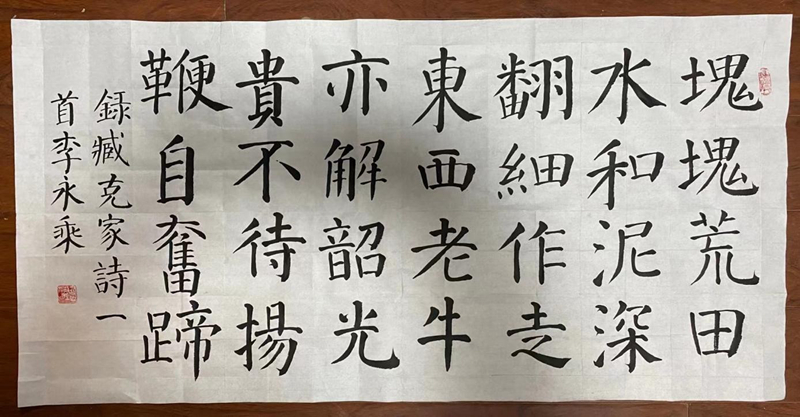 塊塊荒田
水和泥深
翻細作走
東西老牛
亦解韶光
貴不待揚
鞭自奮蹄
録臧克家詩一
首李永乘